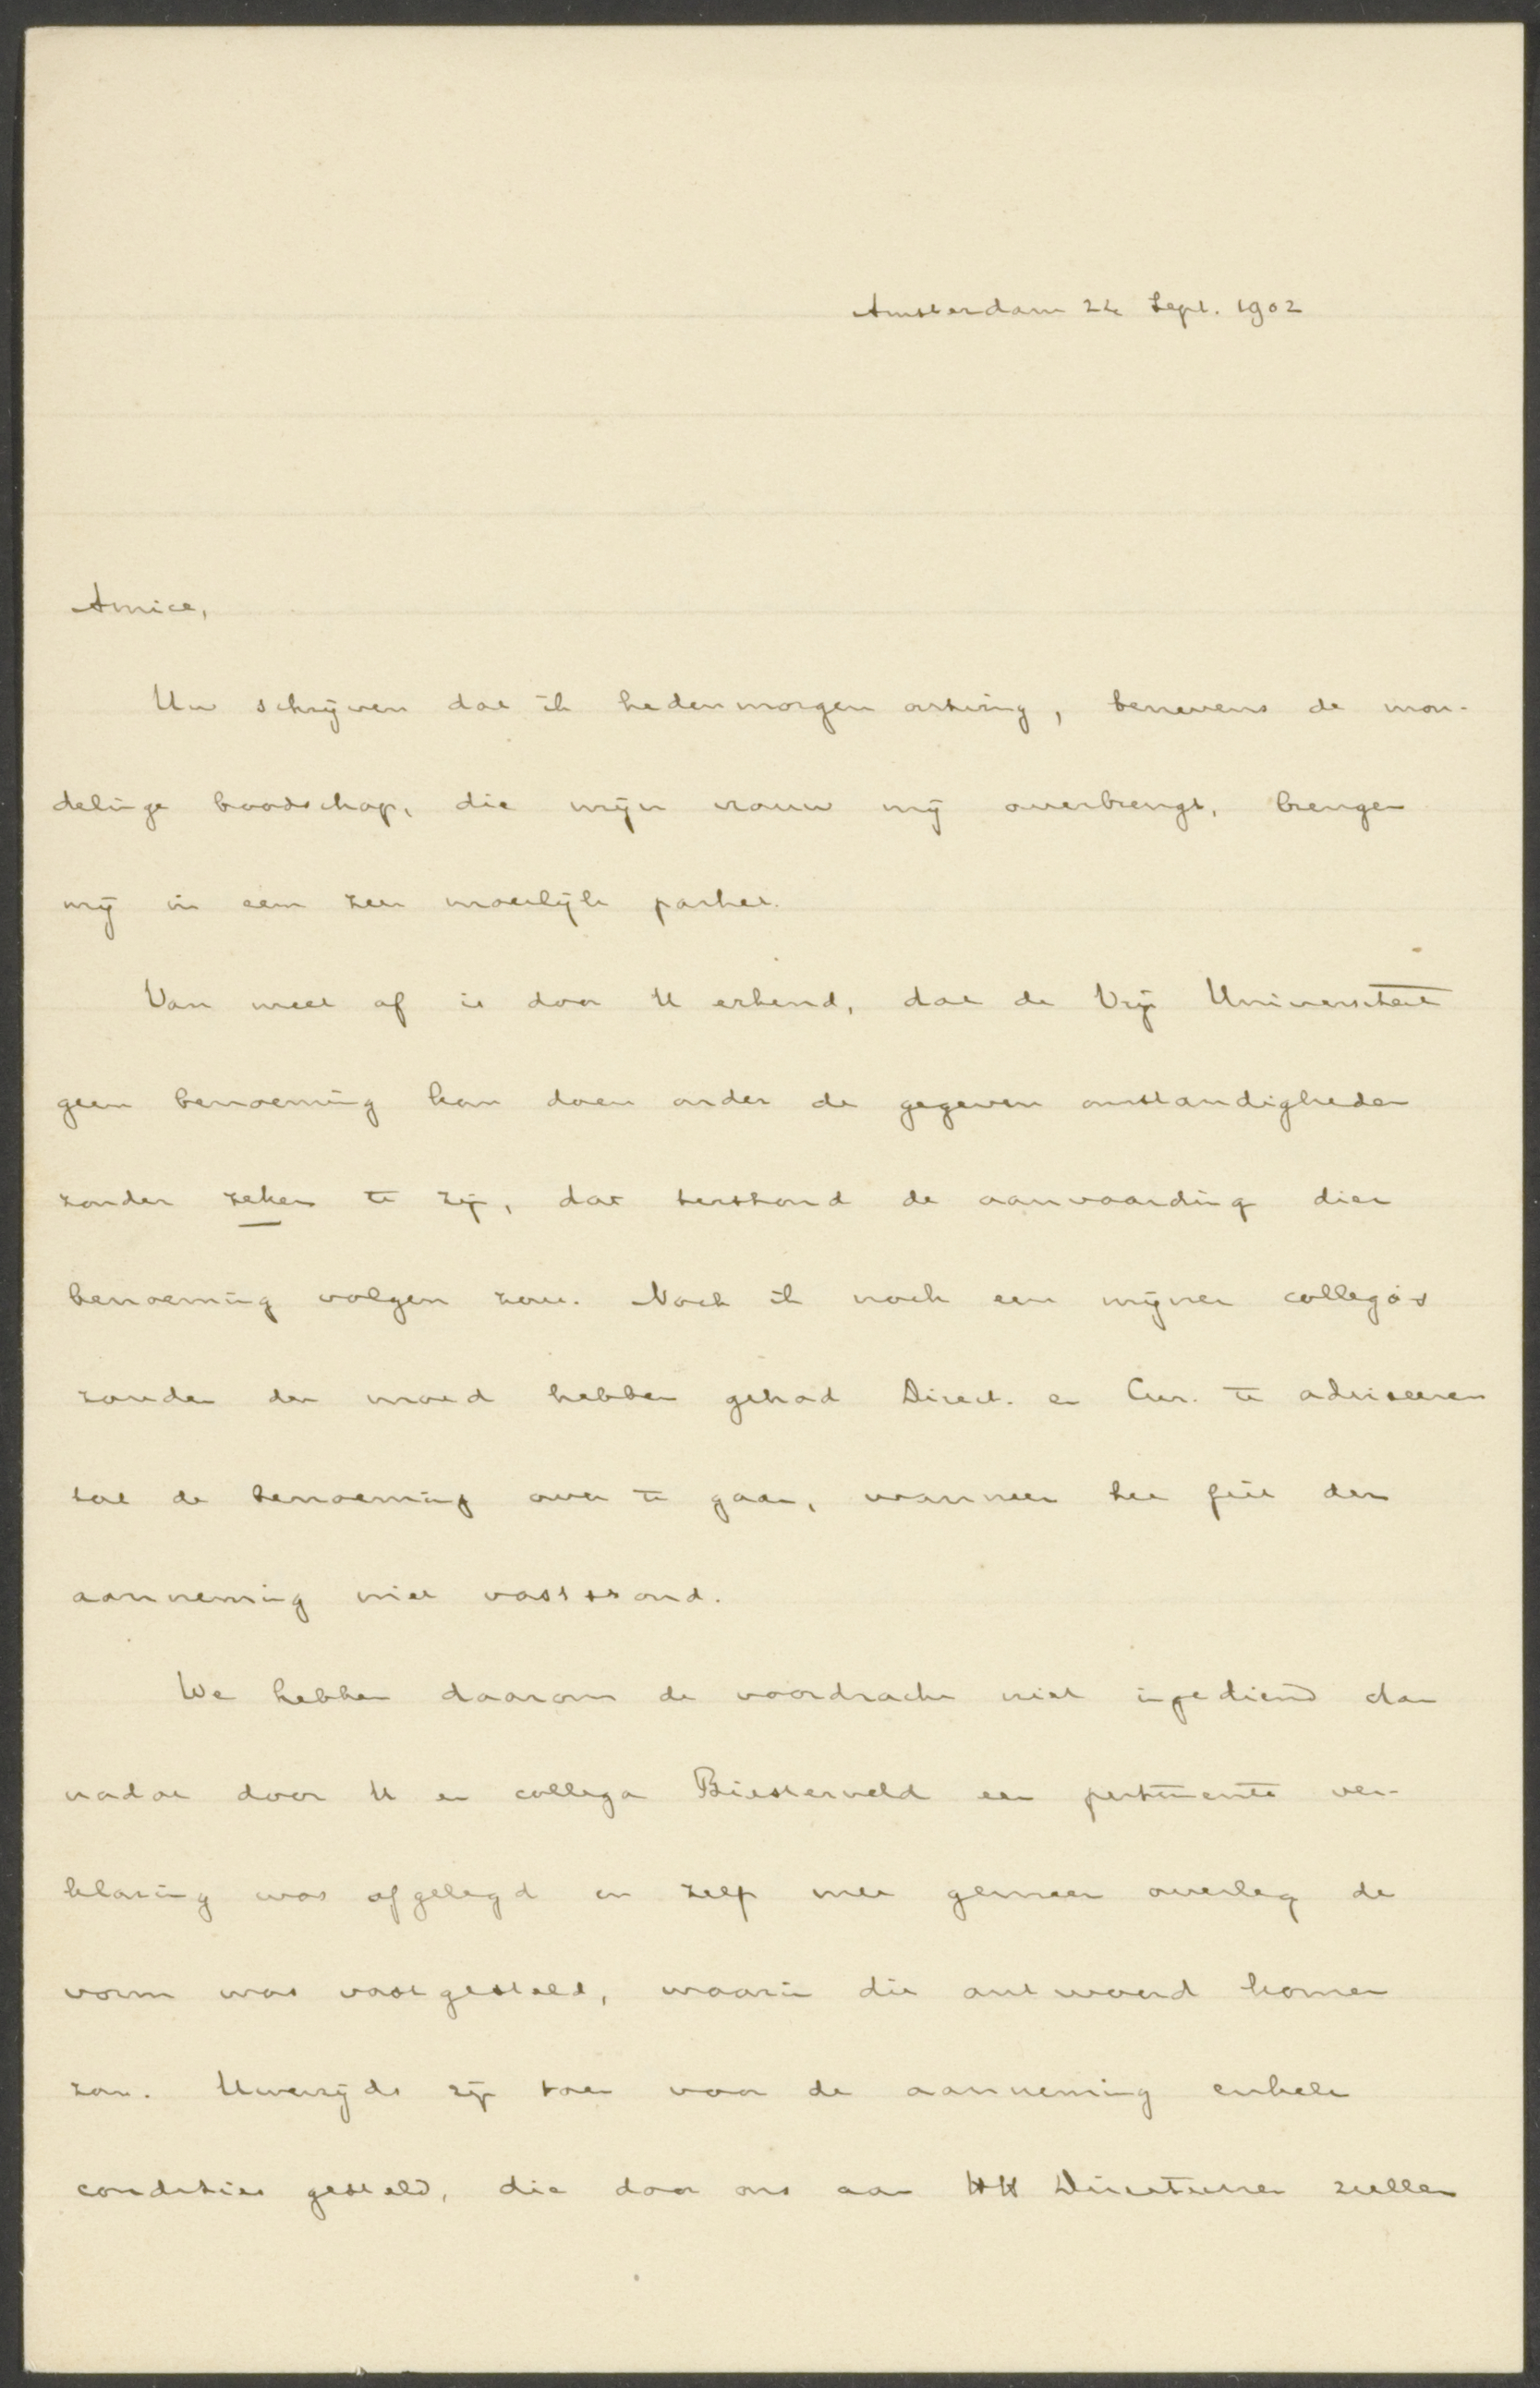 Amsterdam 24 Sept. 1902
Amice,
Uw schrijven dat ik hedenmorgen ontving, benevens de mon-
delinge boodschap, die mijn vrouw mij overbrengt, brengen
mij in een zeer moeilijk parket.
Van meet af is door U erkend, dat de Vrije Universiteit
geen benoeming kan doen onder de gegeven omstandigheden
zonder zeker te zijn, dat terstond de aanvaarding dier
benoeming volgen zou. Noch ik noch een mijner collega's
zouden den moed hebben gehad Direct. en Cur. te adviseeren
tot de benoeming over te gaan, wanneer het feit der
aanneming niet vaststond.
We hebben daarom de voordracht niet ingediend dan
nadat door U en collega Biesterveld een pertinente ver-
klaring was afgelegd en zelf met gemeen overleg de
vorm was vastgesteld, waarin die antwoord komen
zou. Uwerzijds zijn toen voor de aanneming enkele
condities gesteld, die door ons aan HH Directeuren zullen